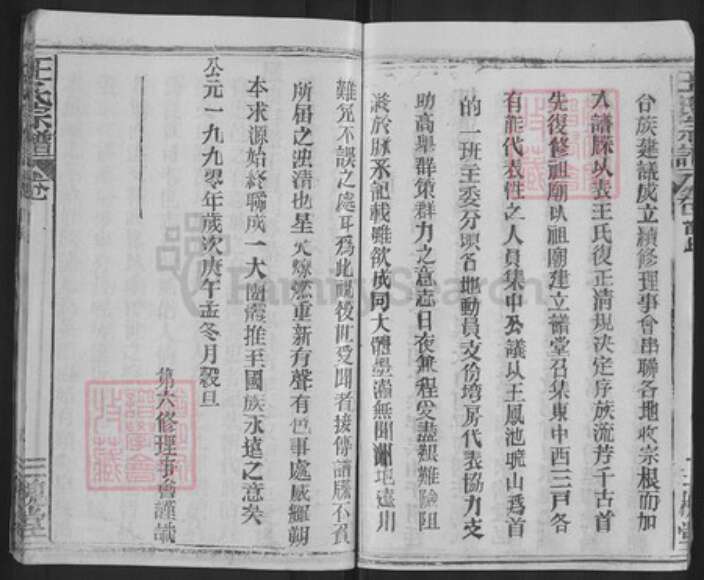 合族建議成立續修理事會串聯各地收宗根而加
入譜牒以表王氏復正清規決定序族流芳千古首
先復修祖廟以祖廟建立譜堂召集東中西三戶各
有能代表性之人員集中公議以王鳳池曉山爲首
的一班主委分頭各地動員支份塆房代表協力支
助高舉群策群力之意志日夜兼程受盡艱難險阻
於脉系記載雖欲成同大體 無間 地遠川
難免不誤之處耳爲此 後 受聞者接傳譜牒不負
所届之 清也星火燎 重新有聲有色事處威耀
本求源始終聯成一大團 推至國族永遠之意矣
公元一九九零年歲次庚午孟冬月穀旦
第六修理事會謹識
王氏宗譜
卷
三槐堂
FamilySearch